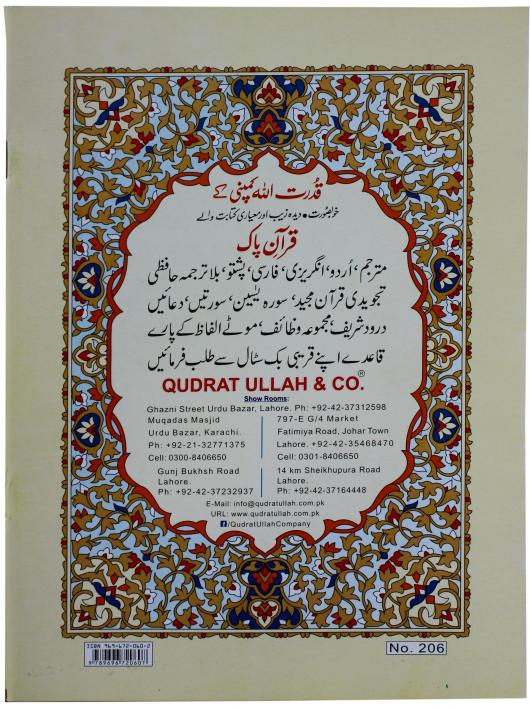 قُدرت اللہ کمپنی کے
خوبصورت • دیدہ زیب اور معیاری کتابت والے
قرآنِ پاک
مترجم، اُردو، انگریزی، فارسی، پشتو، بلا ترجمہ حافظی
تجویدی قرآن مجید، سورہ یٰسین، سورتیں، دعائیں
درود شریف، مجموعہ وظائف، موٹے الفاظ کے پارے
قاعدے اپنے قریبی بک سٹال سے طلب فرمائیں
QUDRAT ULLAH & CO.®
Show Rooms:
Ghazni Street Urdu Bazar, Lahore. Ph: +92-42-37312598
Muqadas Masjid
Urdu Bazar, Karachi.
Ph: +92-21-32771375
Cell: 0300-8406650
797-E G/4 Market
Fatimiya Road, Johar Town
Lahore. +92-42-35468470
Cell: 0301-8406650
Gunj Bukhsh Road
Lahore.
Ph: +92-42-37232937
14 km Sheikhupura Road
Lahore.
Ph: +92-42-37164448
E-Mail: info@qudratullah.com.pk
URL: www.qudratullah.com.pk
f/QudratUllahCompany
ISBN 969-672-060-2
9 789696 720607
No. 206